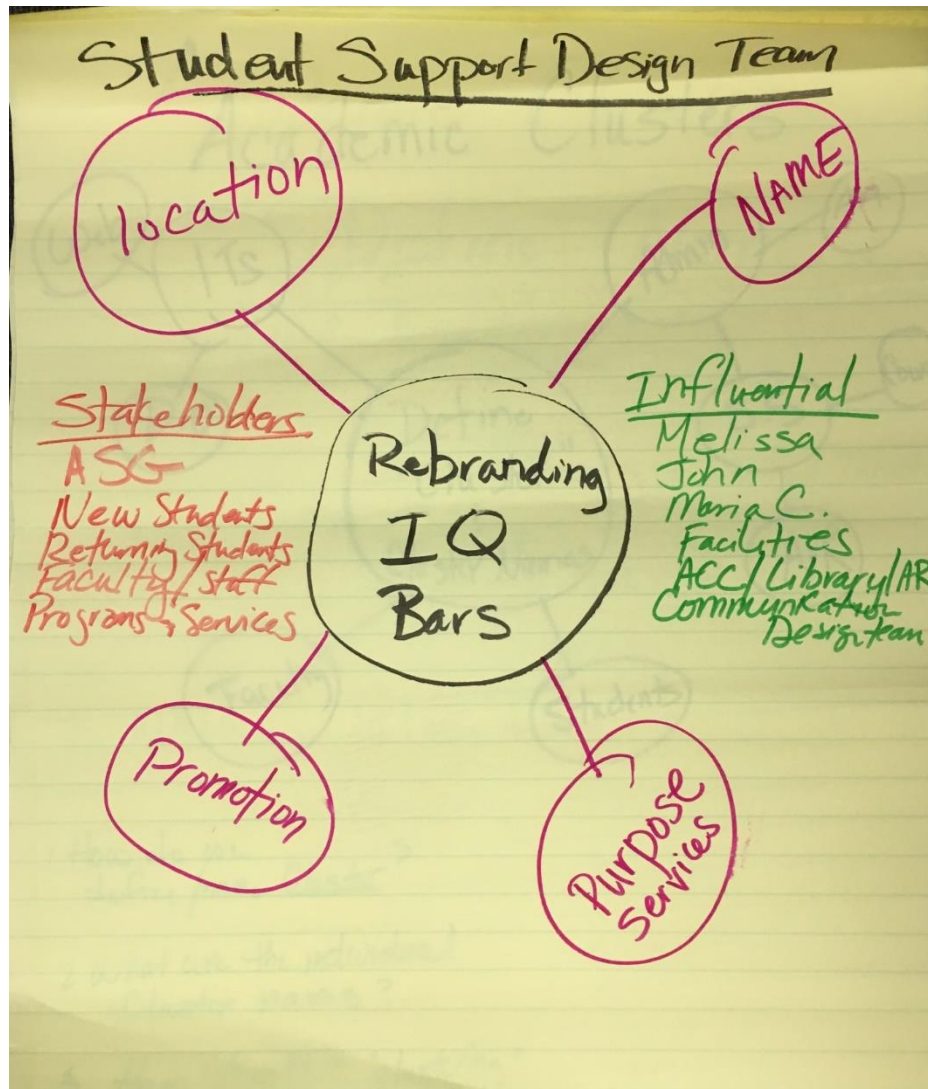 Student Support Design Team
location
NAME
Stakeholders
ASG
New Students
Returning Students
Faculty/staff
Programs & Services
Rebranding
IQ
Bars
Influential
Melissa
John
Maria C.
Facilities
ACC/Library/AR
Communication
Design team
Promotion
Purpose
Services
Academic Clusters
ITs
Define
Faculty
Students